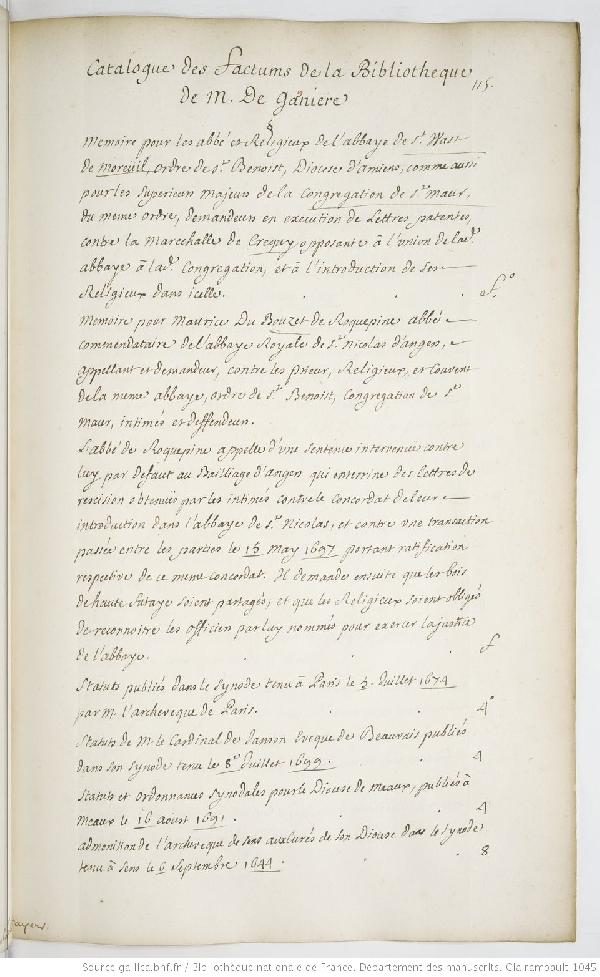 Catalogue des factums de la Bibliotheque
115.
de M. De Ganiere
Memoire pour les abbé et Religieux de l'abbaye de St. Wast
de Moreuil, ordre de St. Benoist, Diocese d'amiens, comme aussi
pour les superieurs majeurs de la Congregation de St. Maur,
du meme ordre, demandeurs en execution de Lettres patentes,
contre la Marechalle de Crequy opposante à l'union de lad.
abbaye à lad. Congregation, et à l'introduction de ses
Religieux dans icelle. . . . fo.
Memoire pour Maurice Du Bouzet de Roquepine abbé
commendataire de l'abbaye Royale de St. Nicolas d'angers,
appellant et demandeur, contre les prieur, Religieux, et Couvent
de la meme abbaye, ordre de St. Benoist, Congregation de St.
Maur, intimés et deffendeurs.
L'abbé de Roquepine appelle d'vne sentence intervenue contre
luy par defaut au Bailliage d'angers qui enterrine des lettres de
rescision obtenues par les intimés contre le concordat de leur
introduction dans l'abbaye de St. Nicolas, et contre vne transaction
passée entre les parties le 15 May 1697 portant ratification
respective de ce meme concordat. Il demande ensuite que les bois
de haute futaye soient partagés, et que les Religieux soient obligés
de reconnoitre les officiers par luy nommés pour exercer la justice
de l'abbaye. . . . f
Statuts publiés dans le synode tenu à Paris le 3. Juillet 1674
par M. l'archeveque de Paris. . . 4o
Statuts de M. le Cardinal de Janson Eveque de Beauvais publiés
dans son synode tenu le 8e Juillet 1699. . . 4
Statuts et ordonnances synodales pour le Diocese de meaux, publiés à
Meaux le 16 aoust 1691. . . . 4
admonition de l'archeveque de sens aux curés de son Diocese dans le synode
tenu à sens le 6 septembre 1644. . . 8
Source gallica.bnf.fr / Bibliothèque nationale de France. Département des manuscrits. Clairambault 1045